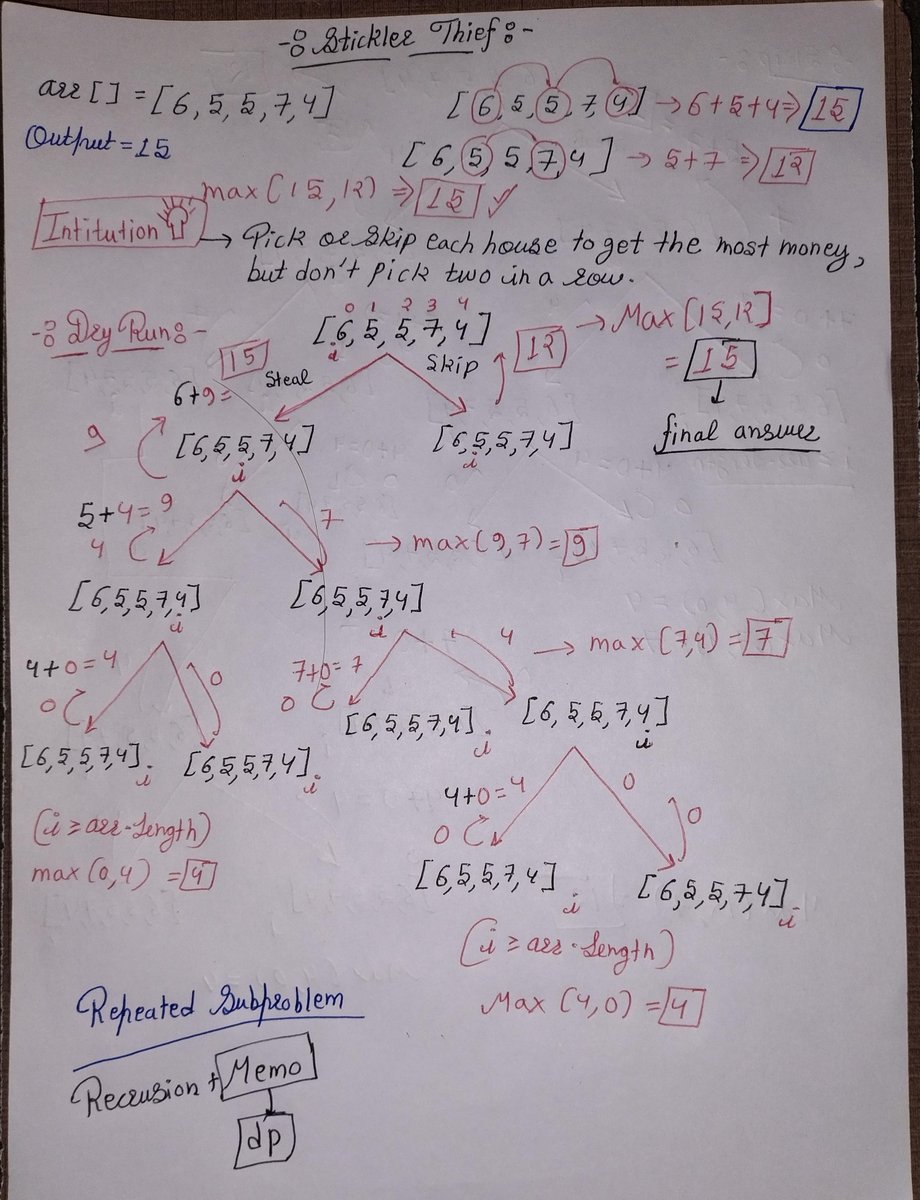 -: Stickler Thief :-
arr[] = [6, 5, 5, 7, 4]
[6, 5, 5, 7, 4] → 6+5+4 ⇒ 15
Output = 15
[6, 5, 5, 7, 4] → 5+7 ⇒ 12
max(15, 12) ⇒ 15 ✓
Intitution → Pick or Skip each house to get the most money,
but don't pick two in a row.
-: Dry Run :-
0 1 2 3 4
[6, 5, 5, 7, 4]
i
→ Max[15, 12]
= 15
final answer
Steal
Skip
12
6+9= 15
9
[6,5,5,7,4]
i
[6,5,5,7,4]
i
5+4=9
4
7
→ max(9,7) = 9
[6,5,5,7,4]
i
[6,5,5,7,4]
i
4+0=4
0
0
7+0=7
0
4
→ max(7,4) = 7
[6,5,5,7,4]
i
[6,5,5,7,4]
i
[6,5,5,7,4]
i
[6,5,5,7,4]
i
(i ≥ arr.length)
max(0,4) = 4
4+0=4
0
0
0
[6,5,5,7,4]
i
[6,5,5,7,4]
i
(i ≥ arr.length)
Max(4,0) = 4
Repeated Subproblem
Recrusion + Memo
dp